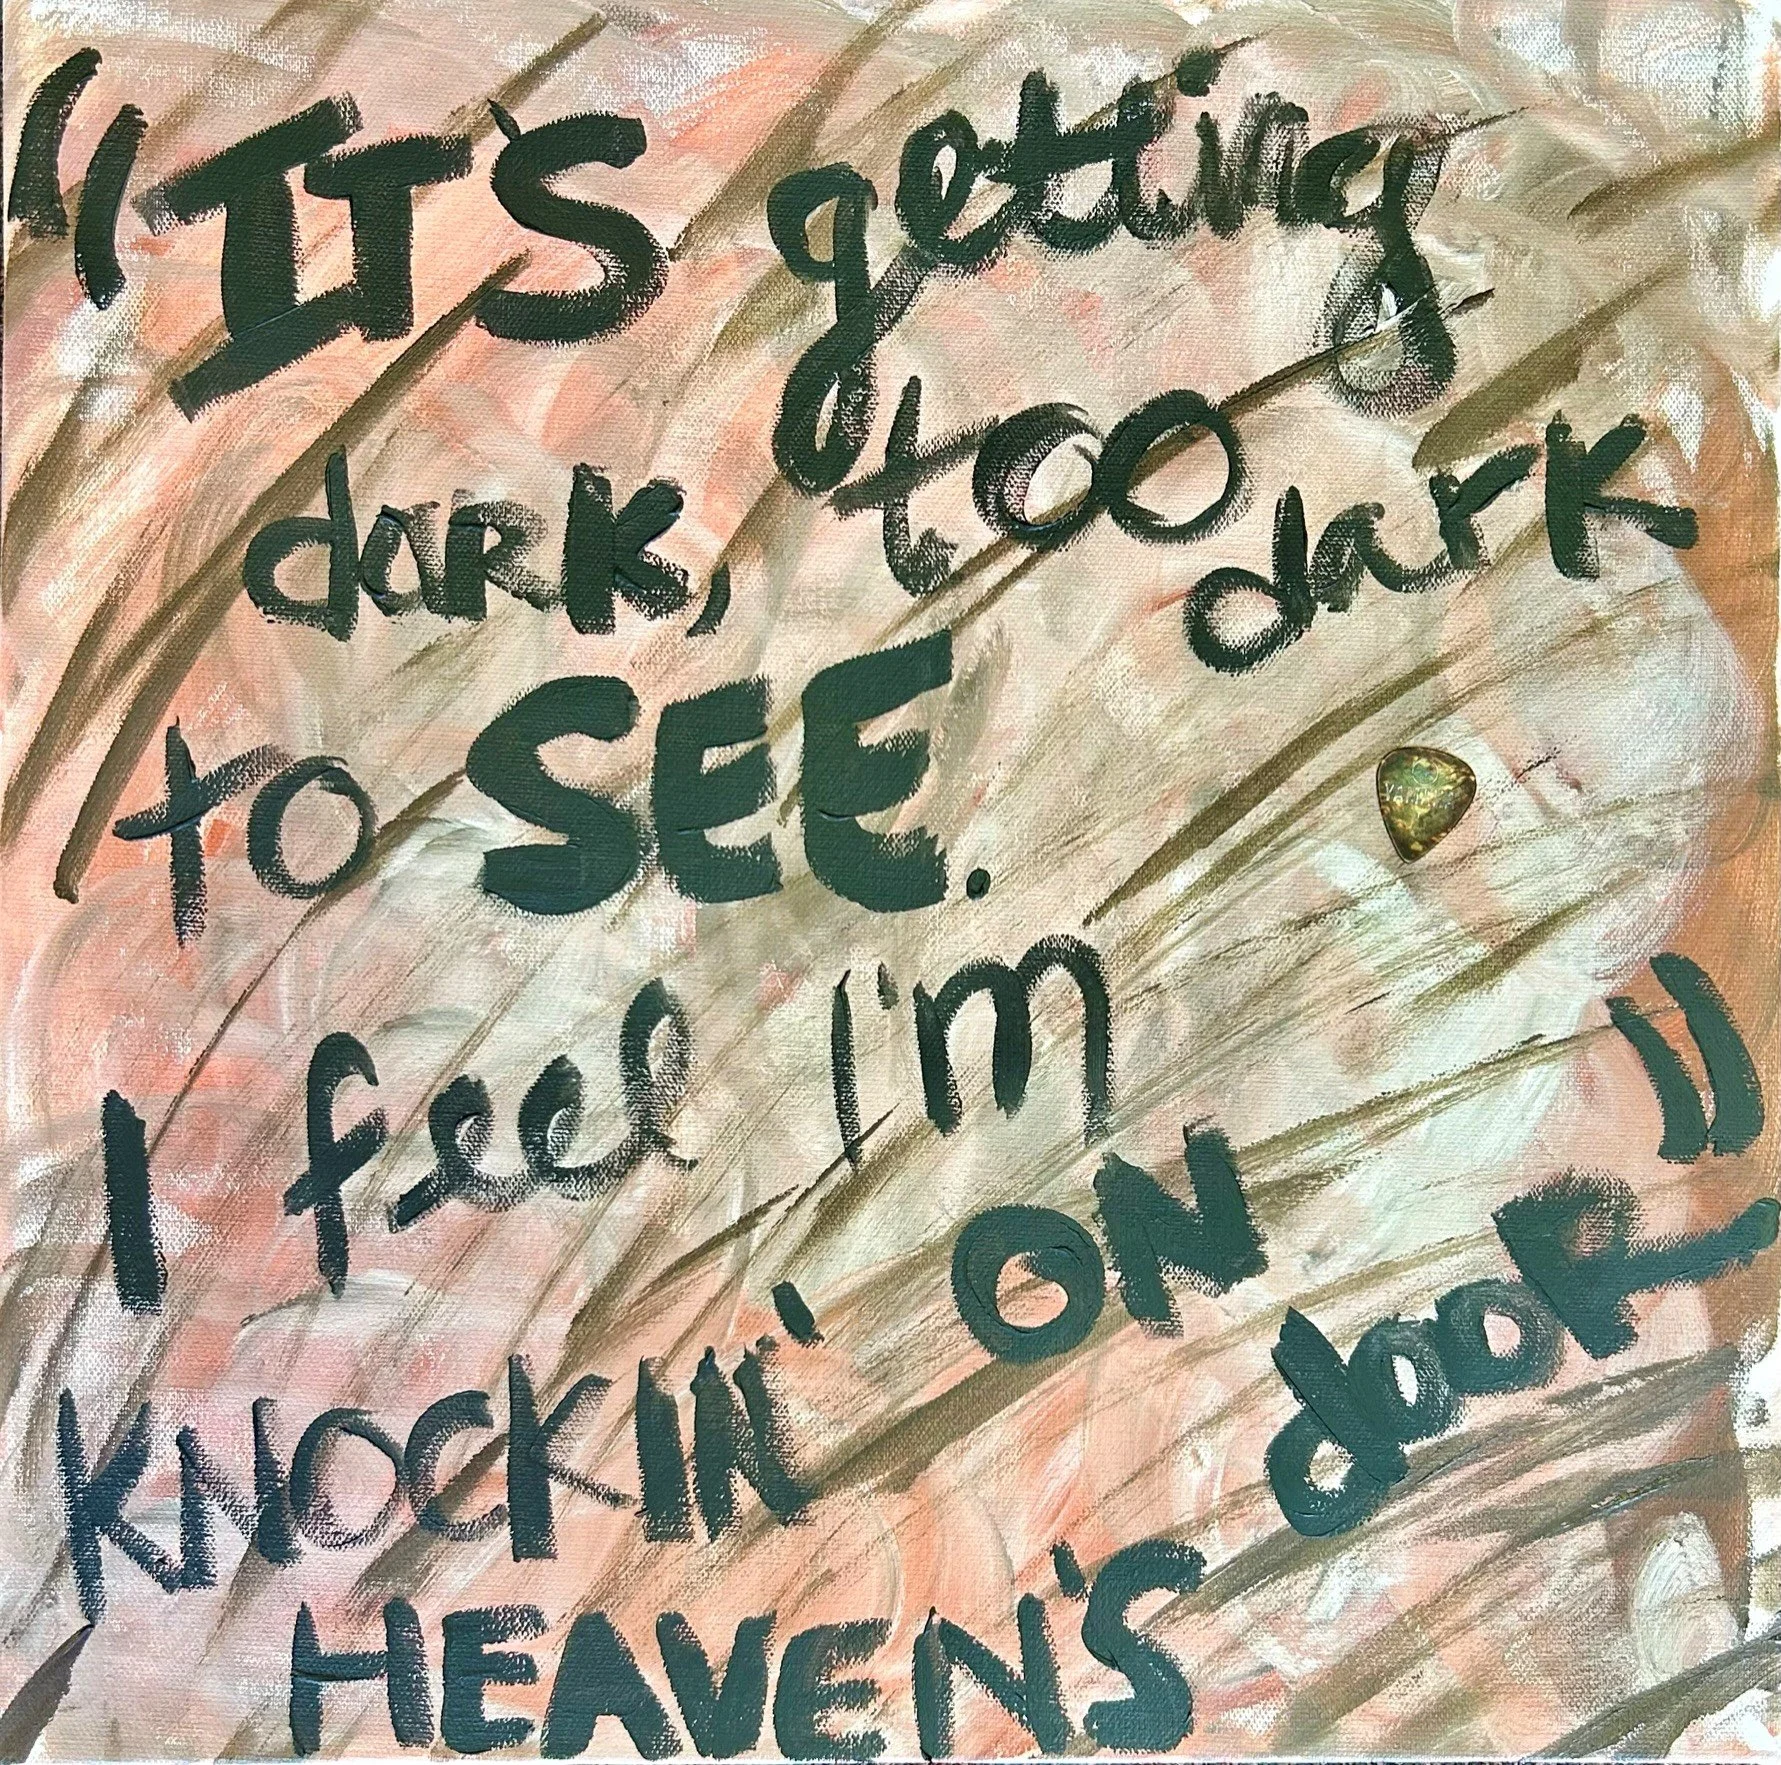 "IT'S getting
dark, too dark
to SEE.
I feel I'm
KNOCKIN' ON
HEAVEN'S dooR"